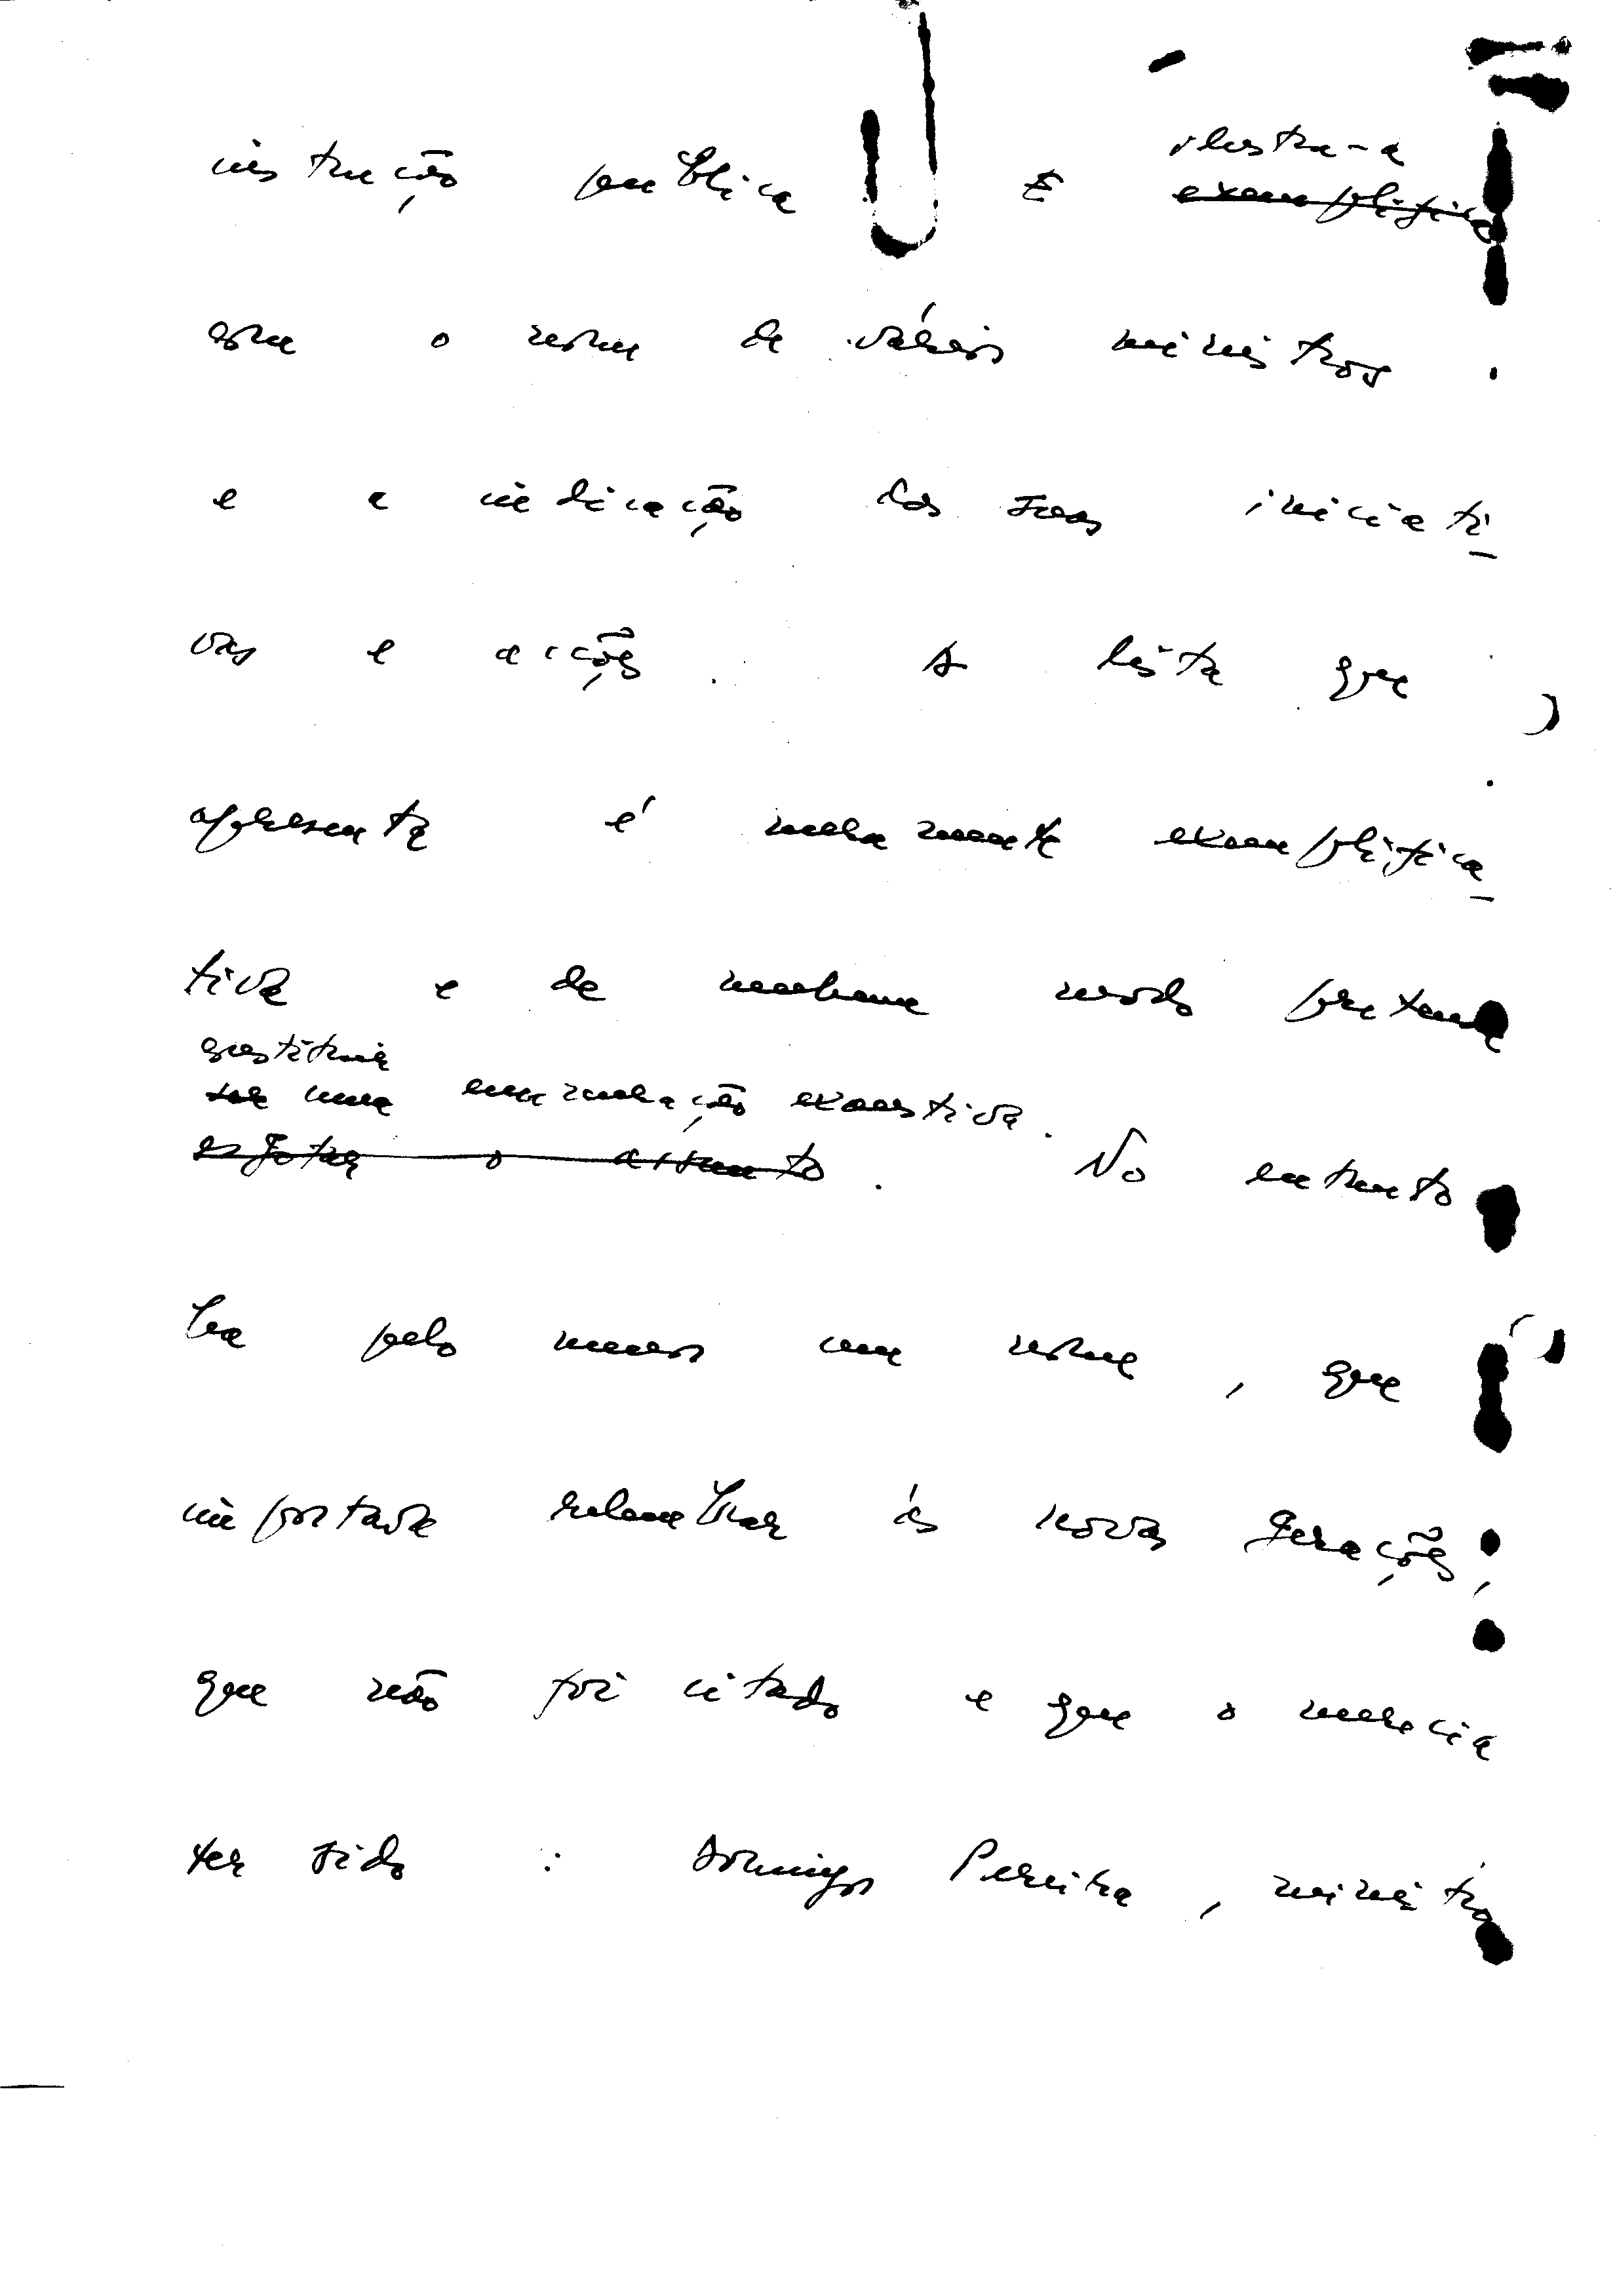 ilustra-a
instrução publica E exemplifica
com o nome de vários ministros
e a indicação das suas iniciati-
vas e acções. A lista que
apresenta é meramente exemplifica-
tiva e de nenhum modo pretende
constituir
ser uma enumeração exaustiva.
esgotar o assunto. No entanto
há pelo menos um nome, que
importava relembrar às novas gerações,
que não foi citado e que o merecia
ter sido: Domingos Pereira, ministro